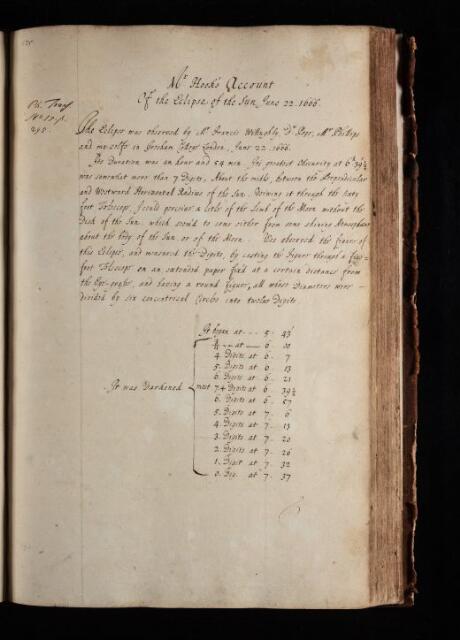 Mr Hook's Account
Of the Eclipse of the Sun June 22. 1666.
The Eclipse was observed by Mr Francis Willughby Dr Pope, Mr Phillips
and my selfe in Gresham Colledge London, June 22. 1666.
Its Duration was an hour and 54 min. Its greatest Obscurity at 6h 39½
was somewhat more than 7 Digits, About the midle, between the Perpendicular
and Westward Horizontal Radius of the Sun. Veiwing it through the sixty
foot Telescope, I could perceive a little of the Limb of the Moon without the
Disk of the Sun, which seem'd to come either from some shining Atmosphere
about the body of the Sun or of the Moon. Wee observed the figure of
this Eclipse, and measured the Digits, by casting the Figure through a five
foot Telescope on an extended paper fixed at a certain distance from
the Eye-glass, and having a round figure, all whose Diameters were
divided by six concentrical Circles into twelve Digits
It began at 5. 43
at 6 00
4 Digits at 6. 7
5. Digits at 6 13
6. Digits at 6. 21
It was Darkened most 7+ Digits at 6. 39½
6. Digits at 6 57
5. Digits at 7. 6
4. Digits at 7. 13
3. Digits at 7. 20
2. Digits at 7. 26
1. Digit at 7. 32
0. Dig. at 7. 37